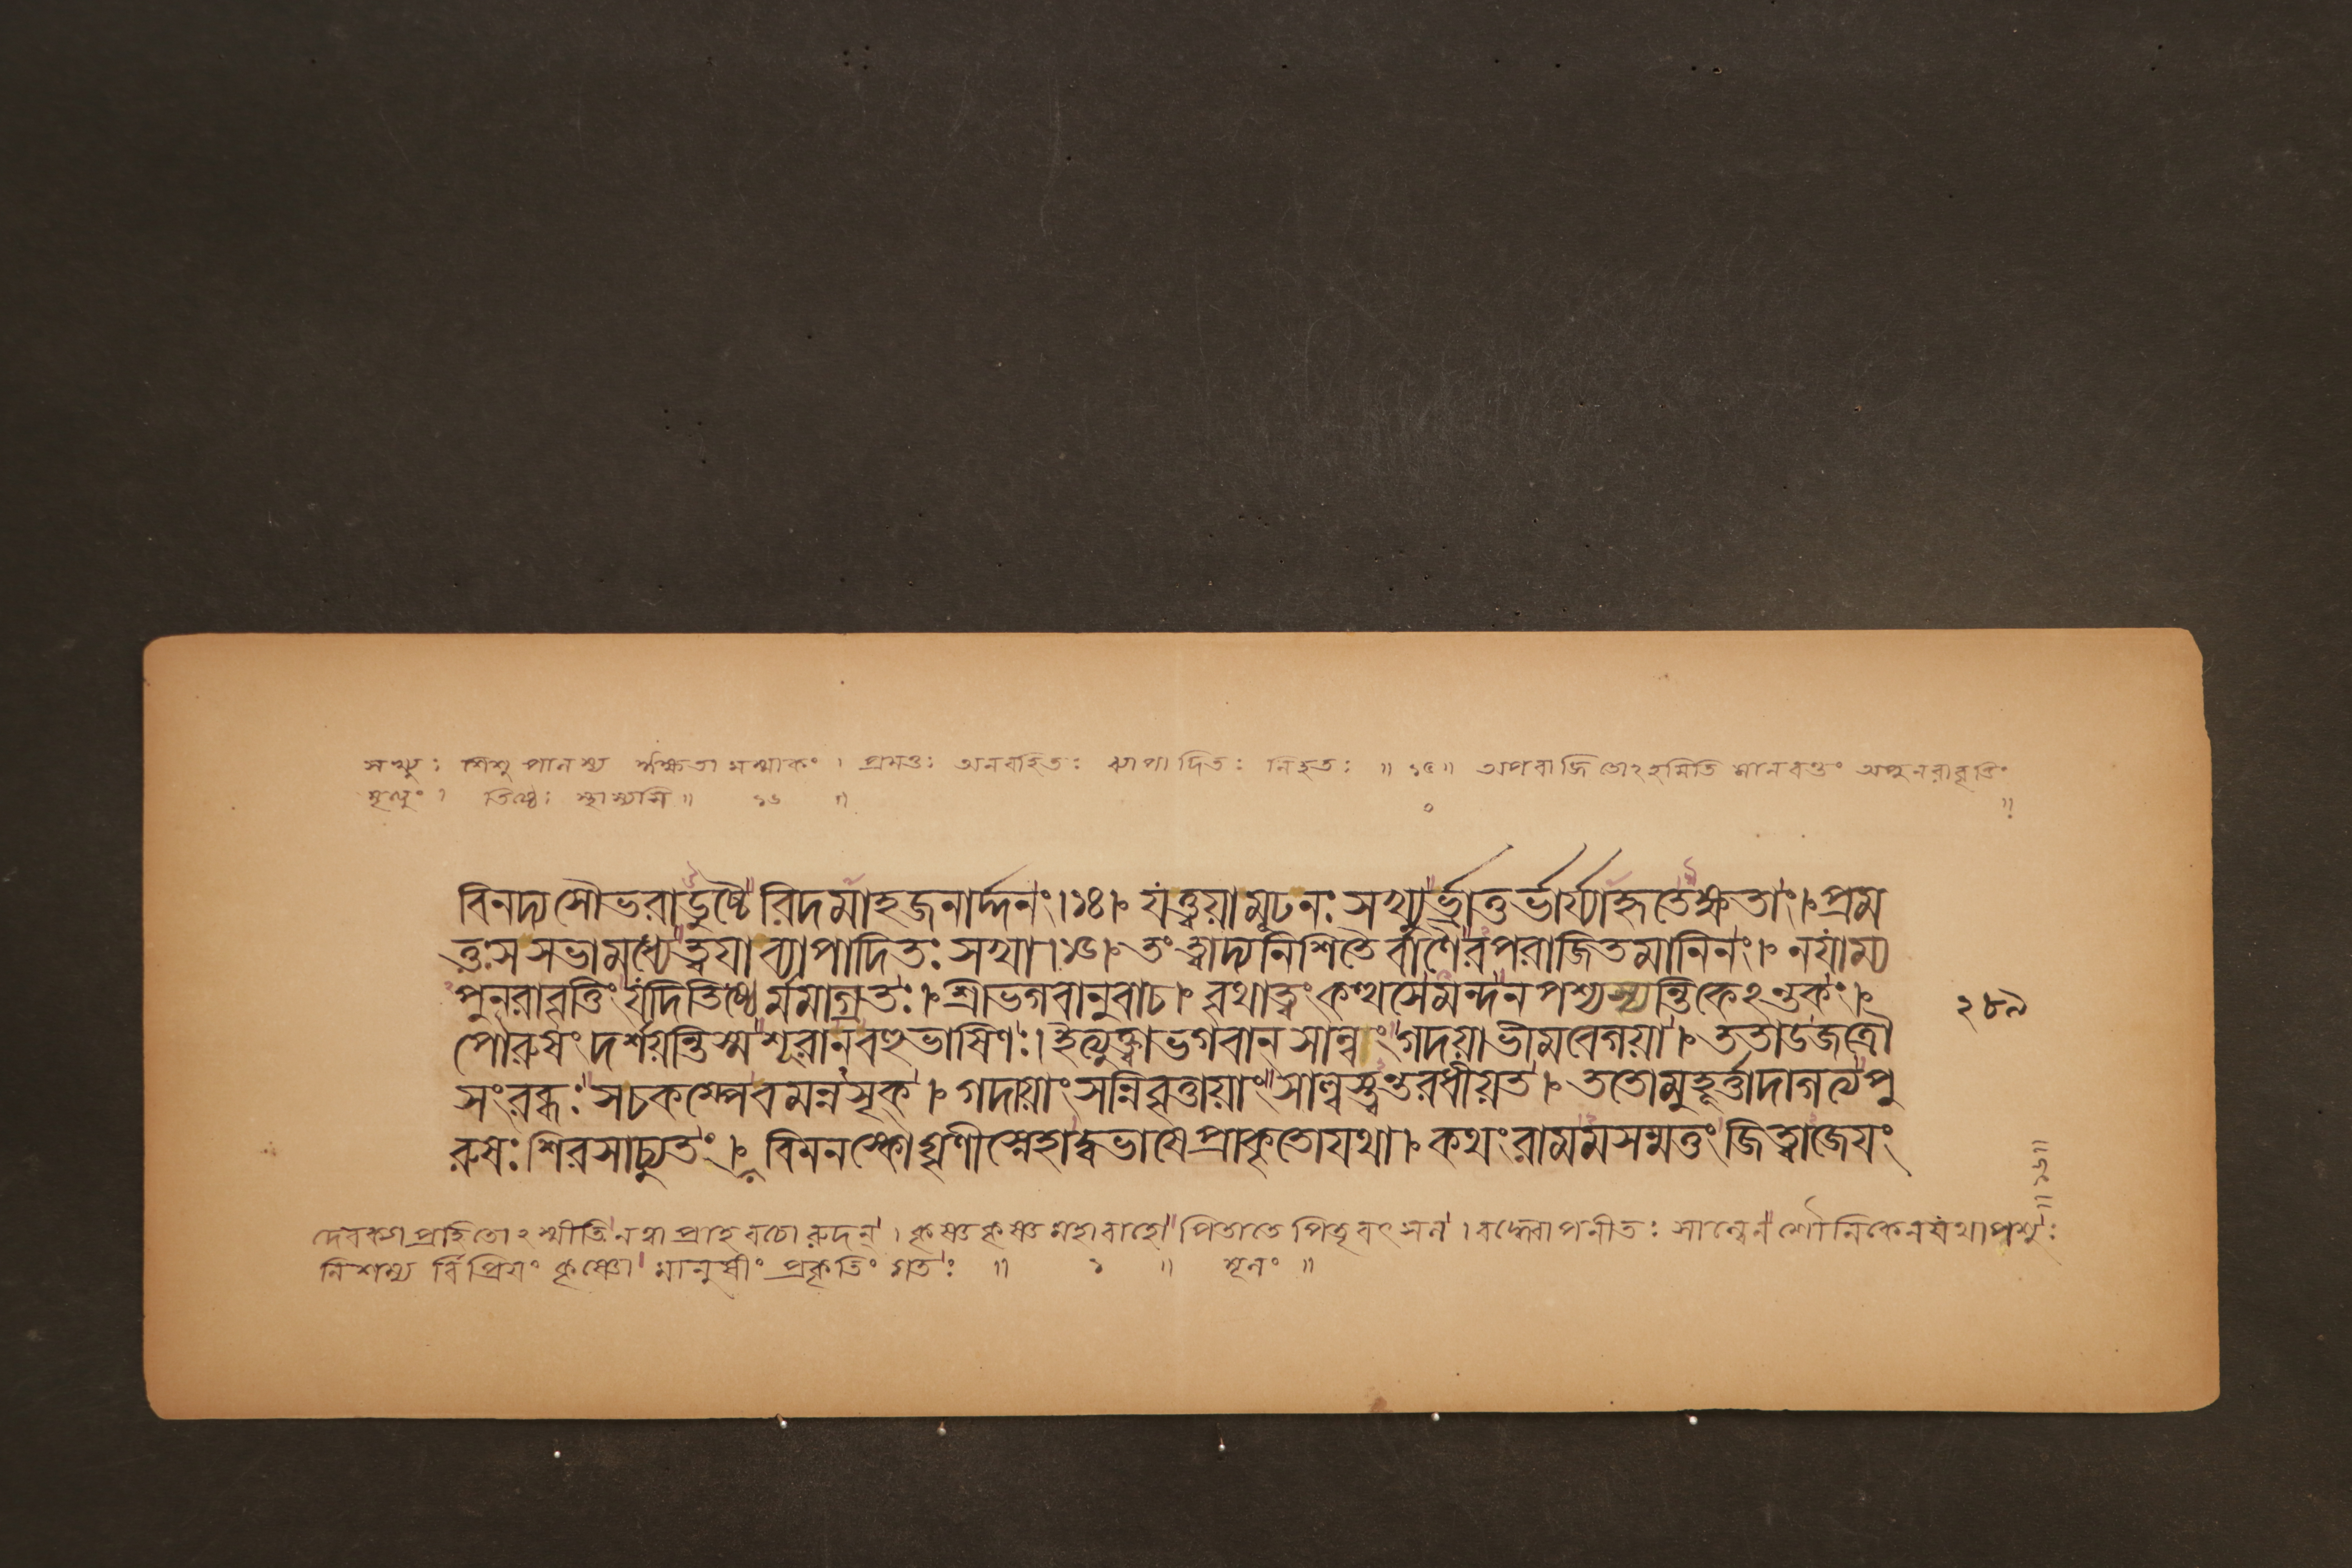 সখ্যুঃ শিশুপালস্য ঈক্ষতামস্মাকং । প্রমত্তঃ অনবহিতঃ ব্যাপাদিতঃ নিহতঃ ॥ ১৫॥ অপরাজিতোঽহমিতি মানবন্তং অপুনরাবৃত্তিং
মৃত্যুং । তিষ্ঠেঃ স্থাস্যসি ॥ ১৬ ॥
বিনদ্য সৌভরাডুচ্চৈরিদমাহ জনার্দ্দনং ।১৪। যত্ত্বয়া মূঢ নঃ সখ্যুর্ভ্রাতুর্ভার্য্যা হৃতেক্ষতাং । প্রম
ত্তঃ স সভামধ্যে ত্বয়া ব্যাপাদিতঃ সখা ।১৫। তং ত্বাদ্য নিশিতৈর্বাণৈরপরাজিতমানিনং । নয়াম্য
পুনরাবৃত্তিং যদি তিষ্ঠের্মমাগ্রতঃ । শ্রীভগবানুবাচ । বৃথা ত্বং কত্থসে মন্দ ন পশ্যস্যন্তিকেঽন্তকং ।
পৌরুষং দর্শয়ন্তি স্ম শূরা ন বহুভাষিণঃ । ইত্যুক্ত্বা ভগবান্ সাল্বং গদয়া ভীমবেগয়া । ততাড জত্রৌ
সংরব্ধঃ স চকম্পে বমন্নসৃক্ । গদায়াং সন্নিবৃত্তায়াং সাল্বস্ত্বন্তরধীয়ত । ততো মুহূর্ত্তাদাগত্য পু
রুষঃ শিরসাচ্যুতং । বিমনস্কো ঘৃণী স্নেহাদ্বভাষে প্রাকৃতো যথা । কথং রামমসম্ভ্রান্তং জিত্বাজেয়ং
২৮৯
॥১৬॥
দেবক্যা প্রহিতোঽস্মীতি নত্বা প্রাহ বচো রুদন্ । কৃষ্ণ কৃষ্ণ মহাবাহো পিতা তে পিতৃবৎসল । বদ্ধ্বাপনীতঃ সাল্বেন সৌনিকেন যথা পশুঃ
নিশম্য বিপ্রিয়ং কৃষ্ণো মানুষীং প্রকৃতিং গতঃ ॥ ১ ॥ মূলং ॥